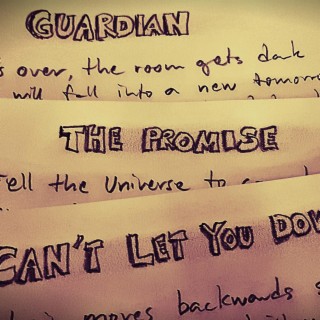 GUARDIAN
's over, the room gets dark
will fall into a new tomorro
THE PROMISE
Tell the Universe to
CAN'T LET YOU DOW
moves backwards s